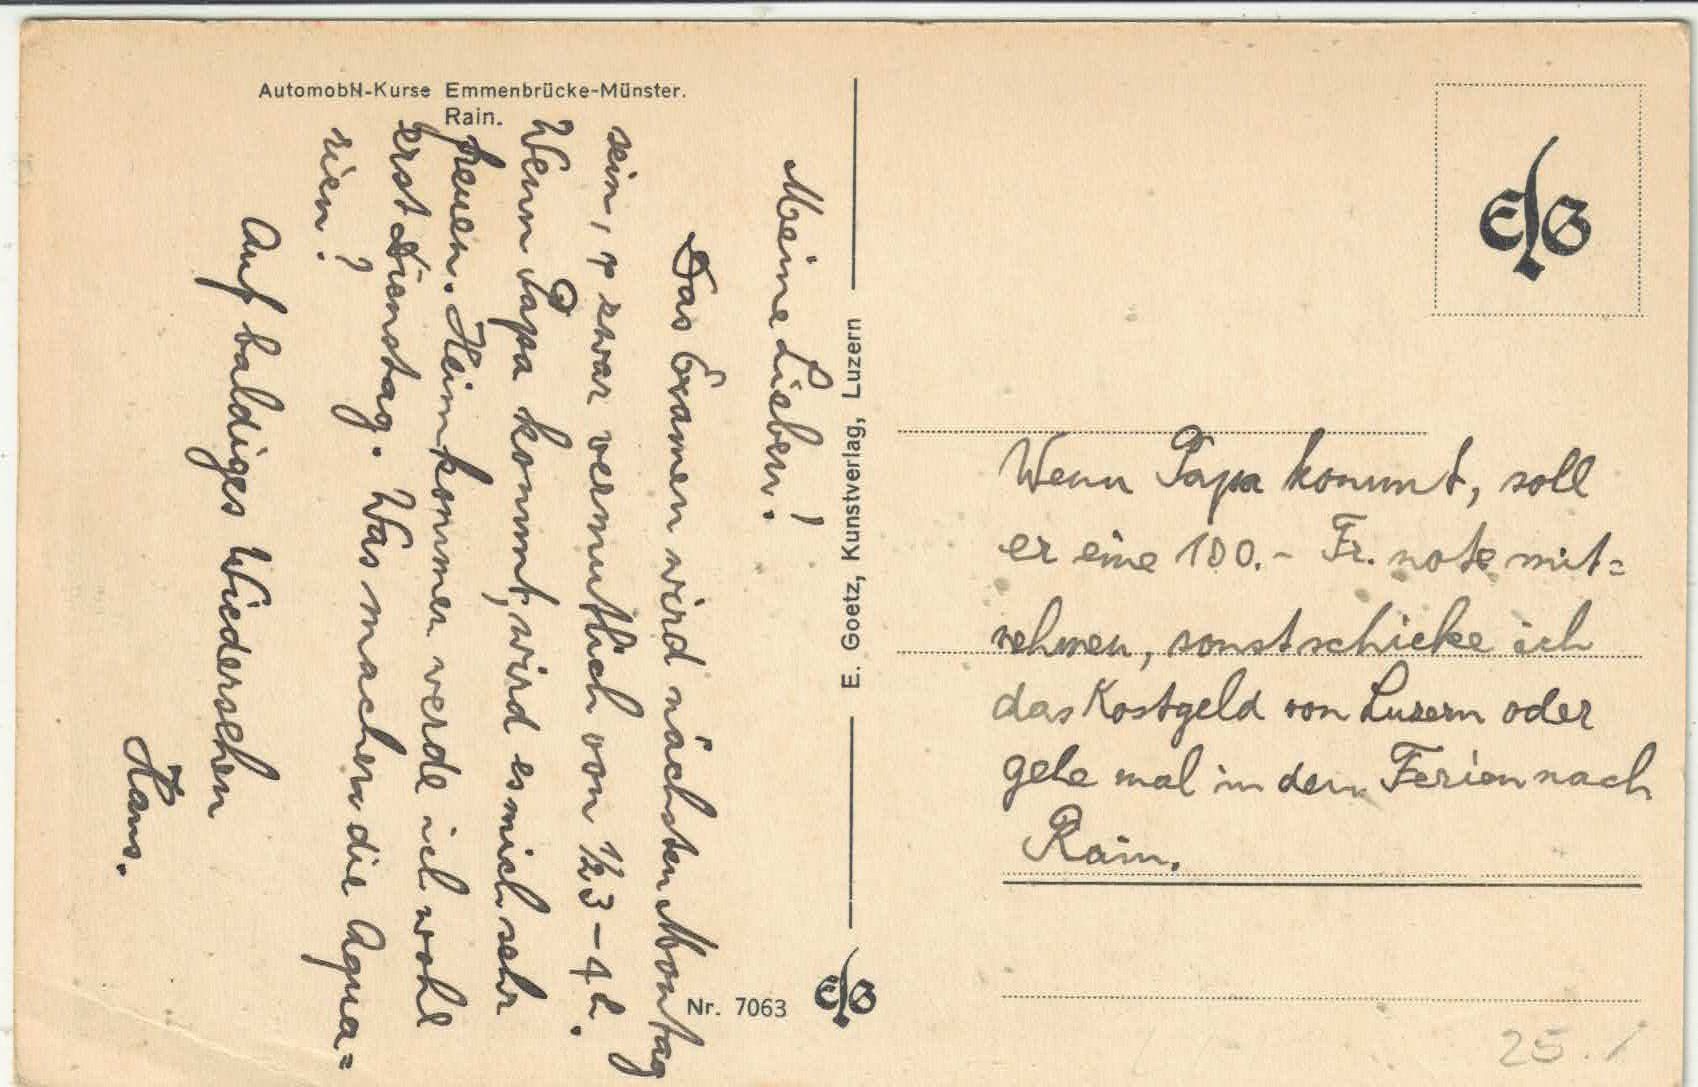 Automobil-Kurse Emmenbrücke-Münster.
Rain.
Meine Lieben!
Das Examen wird nächsten Montag
sein, & zwar vermutlich von ½3-4 h.
Wenn Papa kommt, wird es mich sehr
freuen. Heimkommen werde ich wohl
erst Dienstag. Was machen die Aqua=
rien?
Auf baldiges Wiedersehen
Hans.
E. Goetz, Kunstverlag, Luzern
Nr. 7063
EG
EG
Wenn Papa kommt, soll
er eine 100.- Fr. note mit=
nehmen, sonst schicke ich
das Kostgeld von Luzern oder
gehe mal in den Ferien nach
Rain.
25./